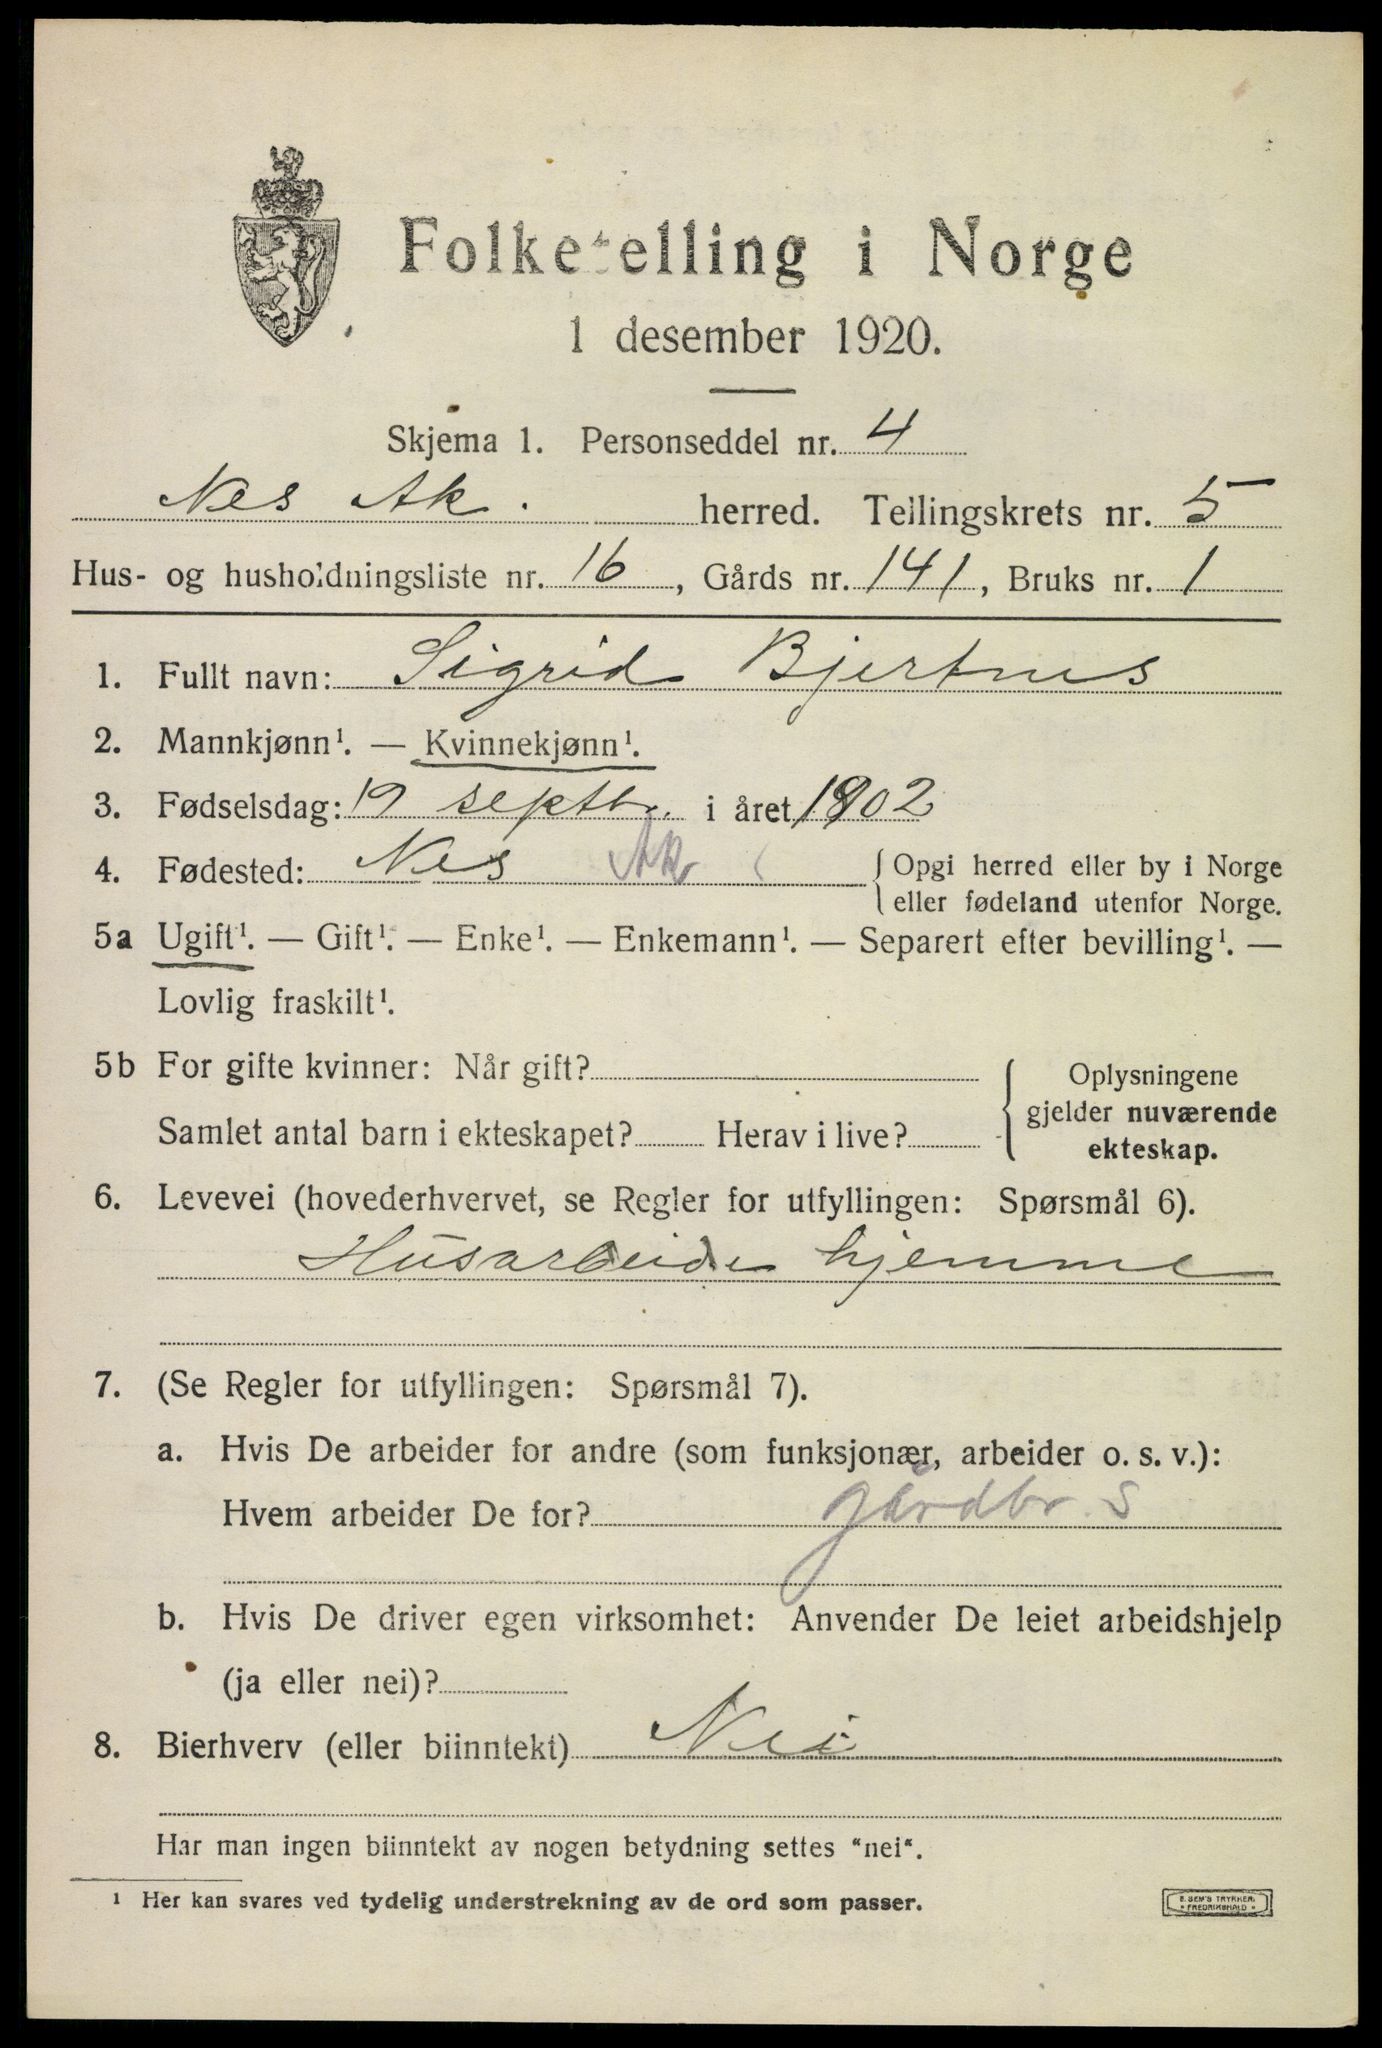 Folketelling i Norge
1 desember 1920.
Skjema 1. Personseddel nr. 4
Nes Ak. herred. Tellingskrets nr. 5
Hus- og husholdningsliste nr. 16, Gårds nr. 141, Bruks nr. 1
1. Fullt navn: Sigrid Bjertnes
2. Mannkjønn¹. — Kvinnekjønn¹.
3. Fødselsdag: 19 septbr. i året 1902
4. Fødested: Nes Ak
{ Opgi herred eller by i Norge
eller fødeland utenfor Norge.
5a Ugift¹. — Gift¹. — Enke¹. — Enkemann¹. — Separert efter bevilling¹. —
Lovlig fraskilt¹.
5b For gifte kvinner: Når gift?
Samlet antal barn i ekteskapet? Herav i live?
{ Oplysningene
gjelder nuværende
ekteskap.
6. Levevei (hovederhvervet, se Regler for utfyllingen: Spørsmål 6).
Husarbeide hjemme
7. (Se Regler for utfyllingen: Spørsmål 7).
a. Hvis De arbeider for andre (som funksjonær, arbeider o. s. v.):
Hvem arbeider De for? gårdbr. s
b. Hvis De driver egen virksomhet: Anvender De leiet arbeidshjelp
(ja eller nei)?
8. Bierhverv (eller biinntekt) Nei
Har man ingen biinntekt av nogen betydning settes "nei".
¹ Her kan svares ved tydelig understrekning av de ord som passer.
E. SEM'S TRYKKERI
FREDRIKSHALD